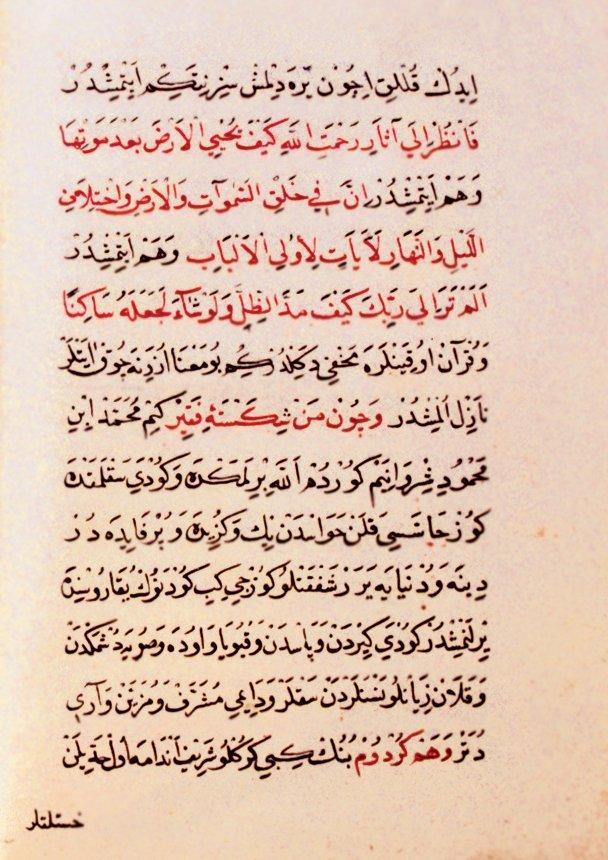 ايدك قللق اچون يره دلمش سز زيتكم ايتمشدر
فانظر الي آثار رحمت الله كيف يحيي الارض بعد موتها
وهم ايتمشدر ان في خلق السموات والارض واختلاف
الليل والنهار لآيات لأولي الالباب وهم ايتمشدر
الم تر الي ربك كيف مد الظل ولو شاء لجعله ساكنا
وقرآن اوقينلره مخفي دكلدركم بو معنا اوزرنه چوق ايتلر
نازل المشدر وچون من شكسته فقير كيم محمد ابن
محمود شروانيم كوردم الله يرلمكده وكودي سقلمقده
كوز حاسسي قلن حواسدن يك وكزيده وپر فايده در
دينه ودنيايه يرر شفقتلو كوزجي كب كودنوك يقاروسنده
يرلنمشدر كودي كيردن وپاسدن وقيويا واوده وصويه دشمكدن
وقلان زيانلو نستلردن سقلر ودايمي مشرف ومزين وآري
دتر وهم كردوم بنك كبي كركلو شريف اندامه اول حديلن
خستلقلر